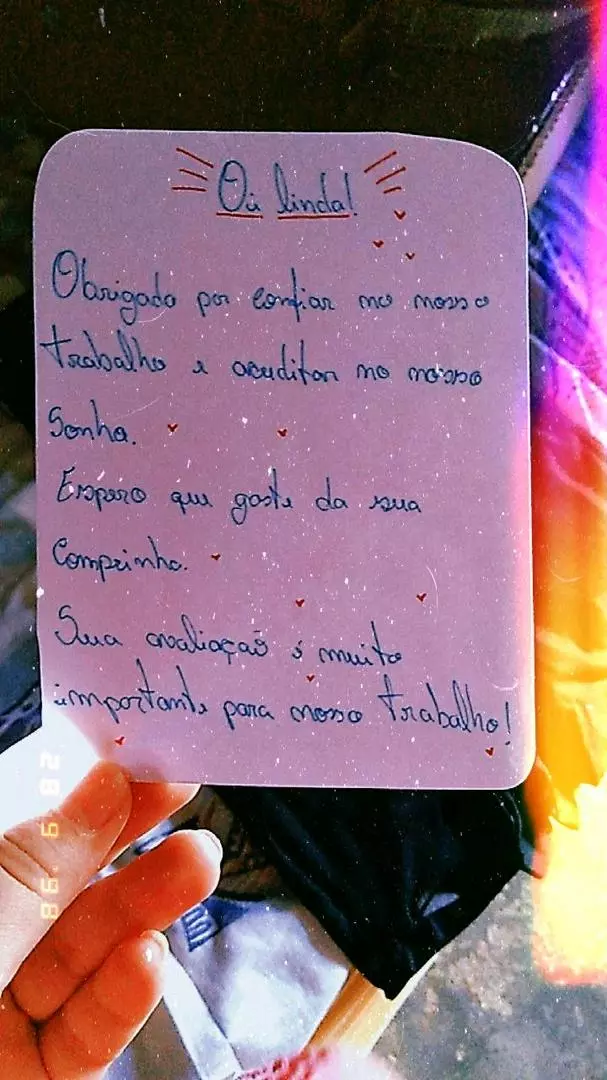 Oi linda!
Obrigado por confiar no nosso
trabalho e acreditar no nosso
Sonho.
Espero que goste da sua
Comprinha.
Sua avaliação é muito
importante para nosso trabalho!
28 9 '98